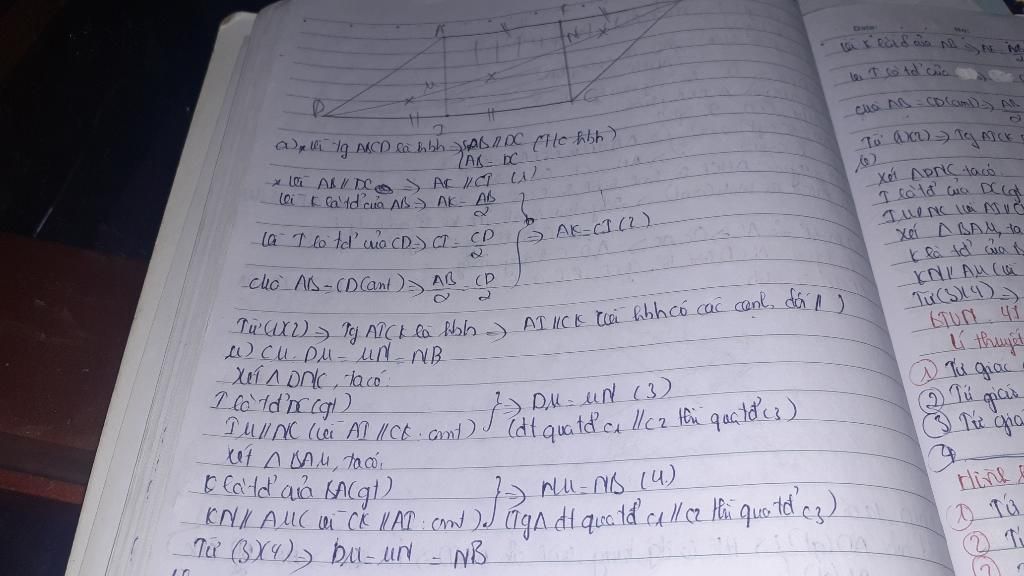 A
K
N
M
D
I
C
a) * Vì Tg ABCD là hbh => { AB // DC (T/c hbh)
AB = DC
* Vì AB // DC => AK // CI (1)
Vì K là tđ của AB => AK = AB/2
Vì I là tđ của CD => CI = CD/2
} => AK = CI (2)
chà AB = CD (cmt) => AB/2 = CD/2
Từ (1)(2) => Tg AICK là hbh => AI // CK (vì hbh có các cạnh đối //)
b) CM. DM = MN = NB
Xét Δ DNC, ta có:
I là tđ DC (gt)
IM // NC (vì AI // CK : cmt)
} => DM = MN (3)
(đt qua tđ c1 // c2 thì qua tđ c3)
Xét Δ BAM, ta có:
K là tđ của BA (gt)
KN // AM (vì CK // AI : cmt)
} => NM = NB (4)
(Tg Δ đt qua tđ c1 // c2 thì qua tđ c3)
Từ (3)(4) => DM = MN = NB
Vì K là tđ của AB => AK = AB
Vì I là tđ của
chà AB = CD (cmt) => AB
Từ (1)(2) => Tg AICK
b)
Xét Δ DNC, ta có:
I là tđ của DC (gt
IM // NC (vì AI //
Xét Δ BAM, ta
K là tđ của B
KN // AM (vì
Từ (3)(4) =>
Lí thuyết
① Tứ giác
② Tứ giác
③ Tứ giác
④
Hình
① Tứ
② Tứ